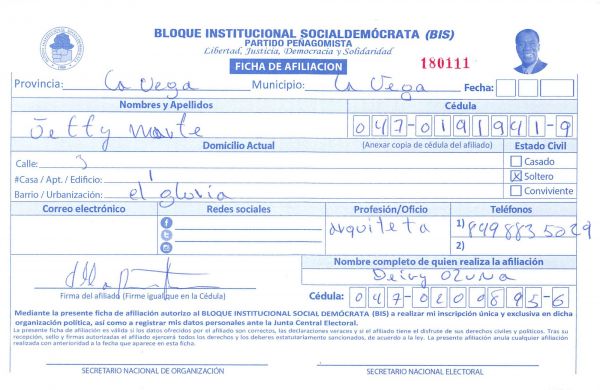 BLOQUE INSTITUCIONAL SOCIALDEMÓCRATA (BIS)
PARTIDO PEÑAGOMISTA
Libertad, Justicia, Democracia y Solidaridad
FICHA DE AFILIACION
180111
Provincia: La Vega Municipio: La Vega Fecha:
Nombres y Apellidos Cédula
Jetty Marte 047-0191941-9
Domicilio Actual (Anexar copia de cédula del afiliado) Estado Civil
Calle: 3 Casado
#Casa / Apt. / Edificio: 1 X Soltero
Barrio / Urbanización: el gloria Conviviente
Correo electrónico Redes sociales Profesión/Oficio Teléfonos
Arquiteta 1) 849 883 5029
2)
Nombre completo de quien realiza la afiliación
Deivy Ozuna
Firma del afiliado (Firme igual que en la Cédula) Cédula: 047-0200895-6
Mediante la presente ficha de afiliación autorizo al BLOQUE INSTITUCIONAL SOCIAL DEMÓCRATA (BIS) a realizar mi inscripción única y exclusiva en dicha
organización política, así como a registrar mis datos personales ante la Junta Central Electoral.
La presente ficha de afiliación es válida si los datos ofrecidos por el afiliado son correctos, las declaraciones veraces y si el afiliado tiene el disfrute de sus derechos civiles y políticos. Tras su
recepción, sello y firmas autorizadas el afiliado ejercerá todos los derechos y los deberes estatutariamente sancionados, de acuerdo a la ley. La presente afiliación anula cualquier afiliación
realizada con anterioridad a la fecha que aparece en esta ficha.
SECRETARIO NACIONAL DE ORGANIZACIÓN SECRETARIO NACIONAL ELECTORAL